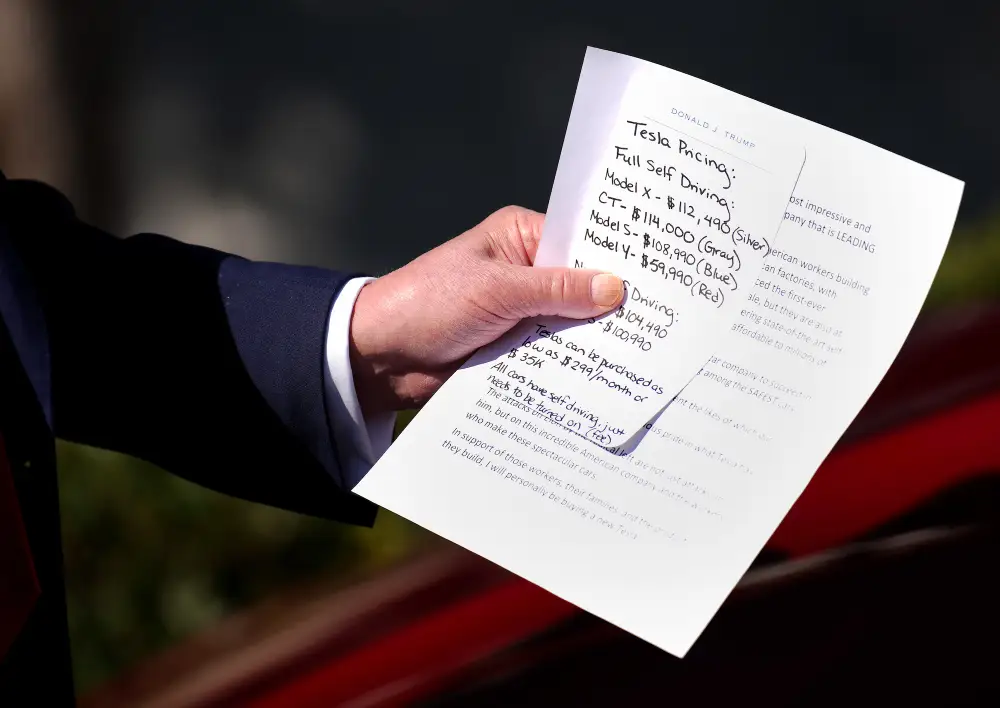 DONALD J. TRUMP
Tesla Pricing:
Full Self Driving:
Model X - $112,490 (Silver)
CT- $114,000 (Gray)
Model S- $108,990 (Blue)
Model Y- $59,990 (Red)
Driving:
$104,490
- $100,990
Teslas can be purchased as
low as $299/month or
$35K
All cars have self driving, just
needs to be turned on (fee)
ost impressive and
pany that is LEADING
erican workers building
an factories, with
ced the first-ever
ale, but they are also at
ering state-of-the-art and
affordable to millions of
ar company to succeed in
among the SAFEST cars
nt the likes of which our
pride in what Tesla has
The attacks on left are not just attacks on
him, but on this incredible American company and the
who make these spectacular cars.
In support of those workers, their families, and the
they build, I will personally be buying a new Tesla